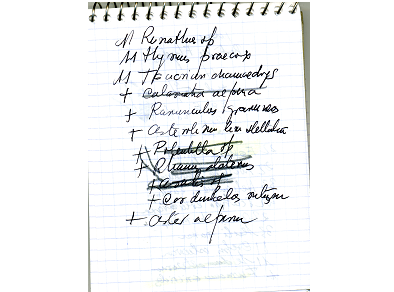 11 Rinathus sp
11 thymus praecox
11 Teucrium chamaedrys
+ Calamintha alpina
+ Ranunculus gramineus
+ Asterolinum linum stellatum
+ Potentilla sp
+ Rhamnus alaternus
+
+ Cor
+ Aster alpinus